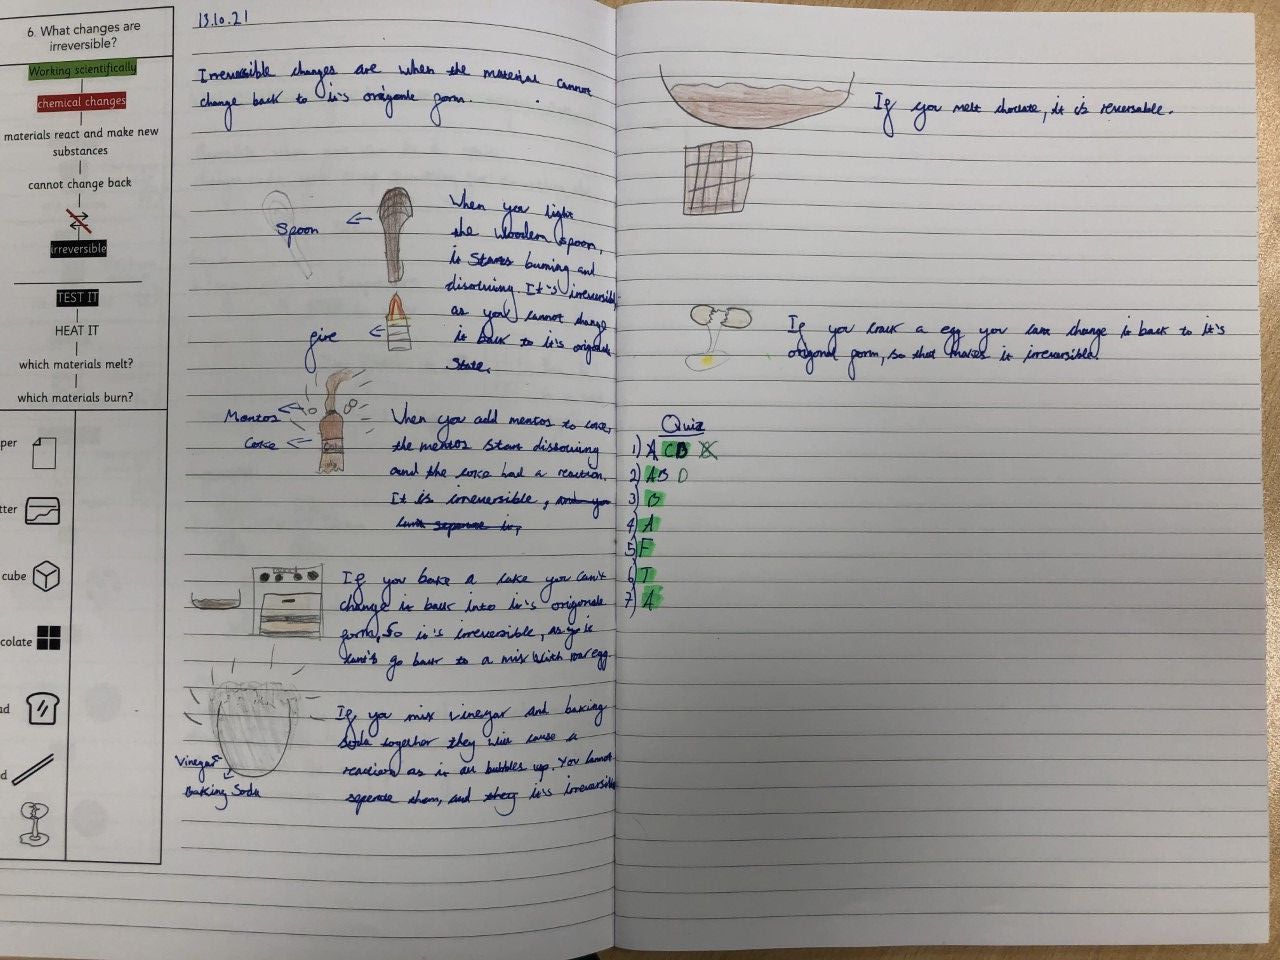 6. What changes are
irreversible?
Working scientifically
chemical changes
materials react and make new
substances
cannot change back
irreversible
TEST IT
HEAT IT
which materials melt?
which materials burn?
per
tter
cube
colate
ad
d
13.10.21
Irreversible changes are when the material cannot
change back to it's origonle form.
Spoon
fire
When you light
the wooden spoon,
it starts burning and
dissolving. It's irreversible
as you cannot change
it back to it's origonle
State.
Mentos
Coke
When you add mentos to coke,
the mentos start dissolving
and the coke had a reaction.
It is irreversible, and you
cant seperate it,
If you bake a cake you can't
change it back into it's origonale
form, So it's irreversible, as it
can't go back to a mix with raw egg.
Vinegar
Baking Soda
If you mix vinegar and baking
soda together they will cause a
reaction as it all bubbles up. You cannot
seperate them, and they it's irreversible
If you melt chocate, it is reversable.
If you crack a egg you cant change it back to it's
origonal form, so that makes it irreversible.
Quiz
1) A C D
2) A B D
3) B
4) A
5) F
6) T
7) A